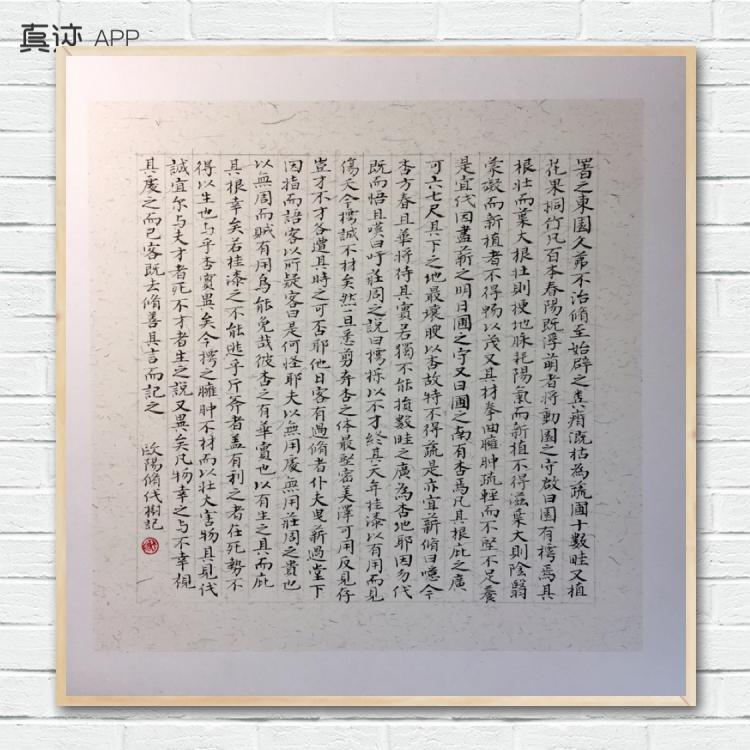 真迹 APP
署之東園久茀不治脩至始辟之糞瘠溉枯為蔬圃十數畦又植
花果桐竹凡百本春陽既浮萌者將動園之守啟曰園有樗焉其
根壯而葉大根壯則梗地脉耗陽氣而新植不得滋葉大則陰翳
蒙礙而新植者不得暢以茂又其材拳曲臃肿疏輕而不堅不足養
是宜伐因盡薪之明日圃之守又曰圃之南有杏焉凡其根庇之廣
可六七尺其下之地最壤腴以杏故特不得蔬是亦宜薪脩曰噫今
杏方春且華將待其實若獨不能損數畦之廣為杏地耶因勿伐
既而悟且嘆曰吁莊周之說曰樗櫟以不才終其天年桂漆以有用而見
傷夭今樗誠不材矣然一旦悉剪弃杏之体最堅密美澤可用反見存
豈才不才各遭其時之可否耶他日客有過脩者仆夫曳薪過堂下
因指而語客以所疑客曰是何怪耶夫以無用處無用莊周之貴也
以無用而賊有用烏能免哉彼杏之有華實也以有生之具而庇
其根幸矣若桂漆之不能逃乎斤斧者盖有利之者在死勢不
得以生也与乎杏實異矣今樗之臃肿不材而以壯大害物其見伐
誠宜尔与夫才者死不才者生之說又異矣凡物幸之与不幸視
其處之而已客既去脩善其言而記之 歐陽脩伐樹記